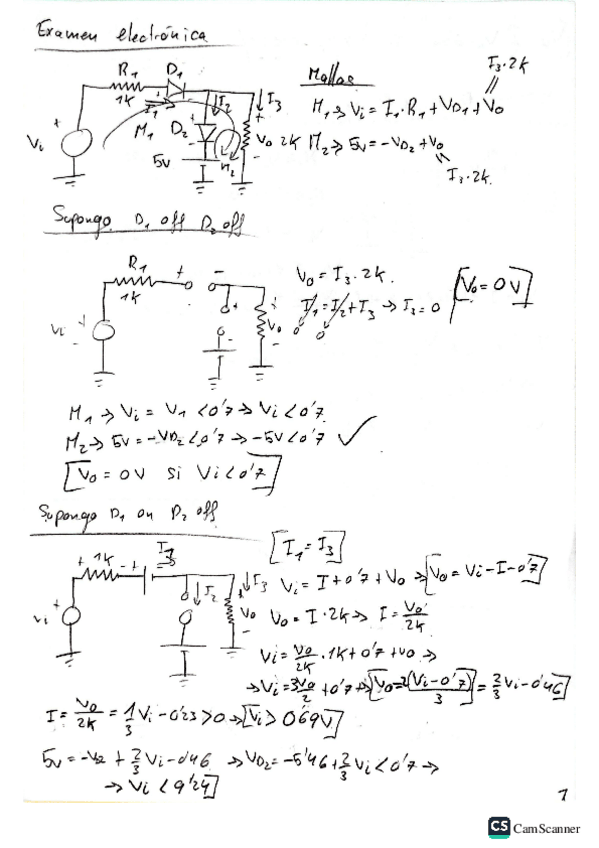 Examen electrónica
R1 D1
1K I1 I2 I3
Vi M1 D2 Vo 2K
5V M2
Mallas
I3·2K
M1 → Vi = I1·R1 + VD1 + Vo
M2 → 5V = -VD2 + Vo
I3·2K.
Supongo D1 off D2 off
R1
1K
Vi Vo
Vo = I3·2K.
I1 = I2 + I3 → I3 = 0
0 0
[Vo = 0V]
M1 → Vi = V1 < 0'7 → Vi < 0'7
M2 → 5V = -VD2 < 0'7 → -5V < 0'7 ✓
[Vo = 0V si Vi < 0'7]
Supongo D1 on D2 off
1K
Vi I2 I3 Vo
[I1 = I3]
Vi = I + 0'7 + Vo → [Vo = Vi - I - 0'7]
Vo = I·2K → I = Vo/2K
Vi = Vo/2K · 1K + 0'7 + Vo →
→ Vi = 3Vo/2 + 0'7 → [Vo = 2(Vi - 0'7)/3 = 2/3 Vi - 0'46]
I = Vo/2K = 1/3 Vi - 0'23 > 0 → [Vi > 0'69V]
5V = -V2 + 2/3 Vi - 0'46 → VD2 = -5'46 + 2/3 Vi < 0'7 →
→ Vi < 9'24]
1
CS CamScanner